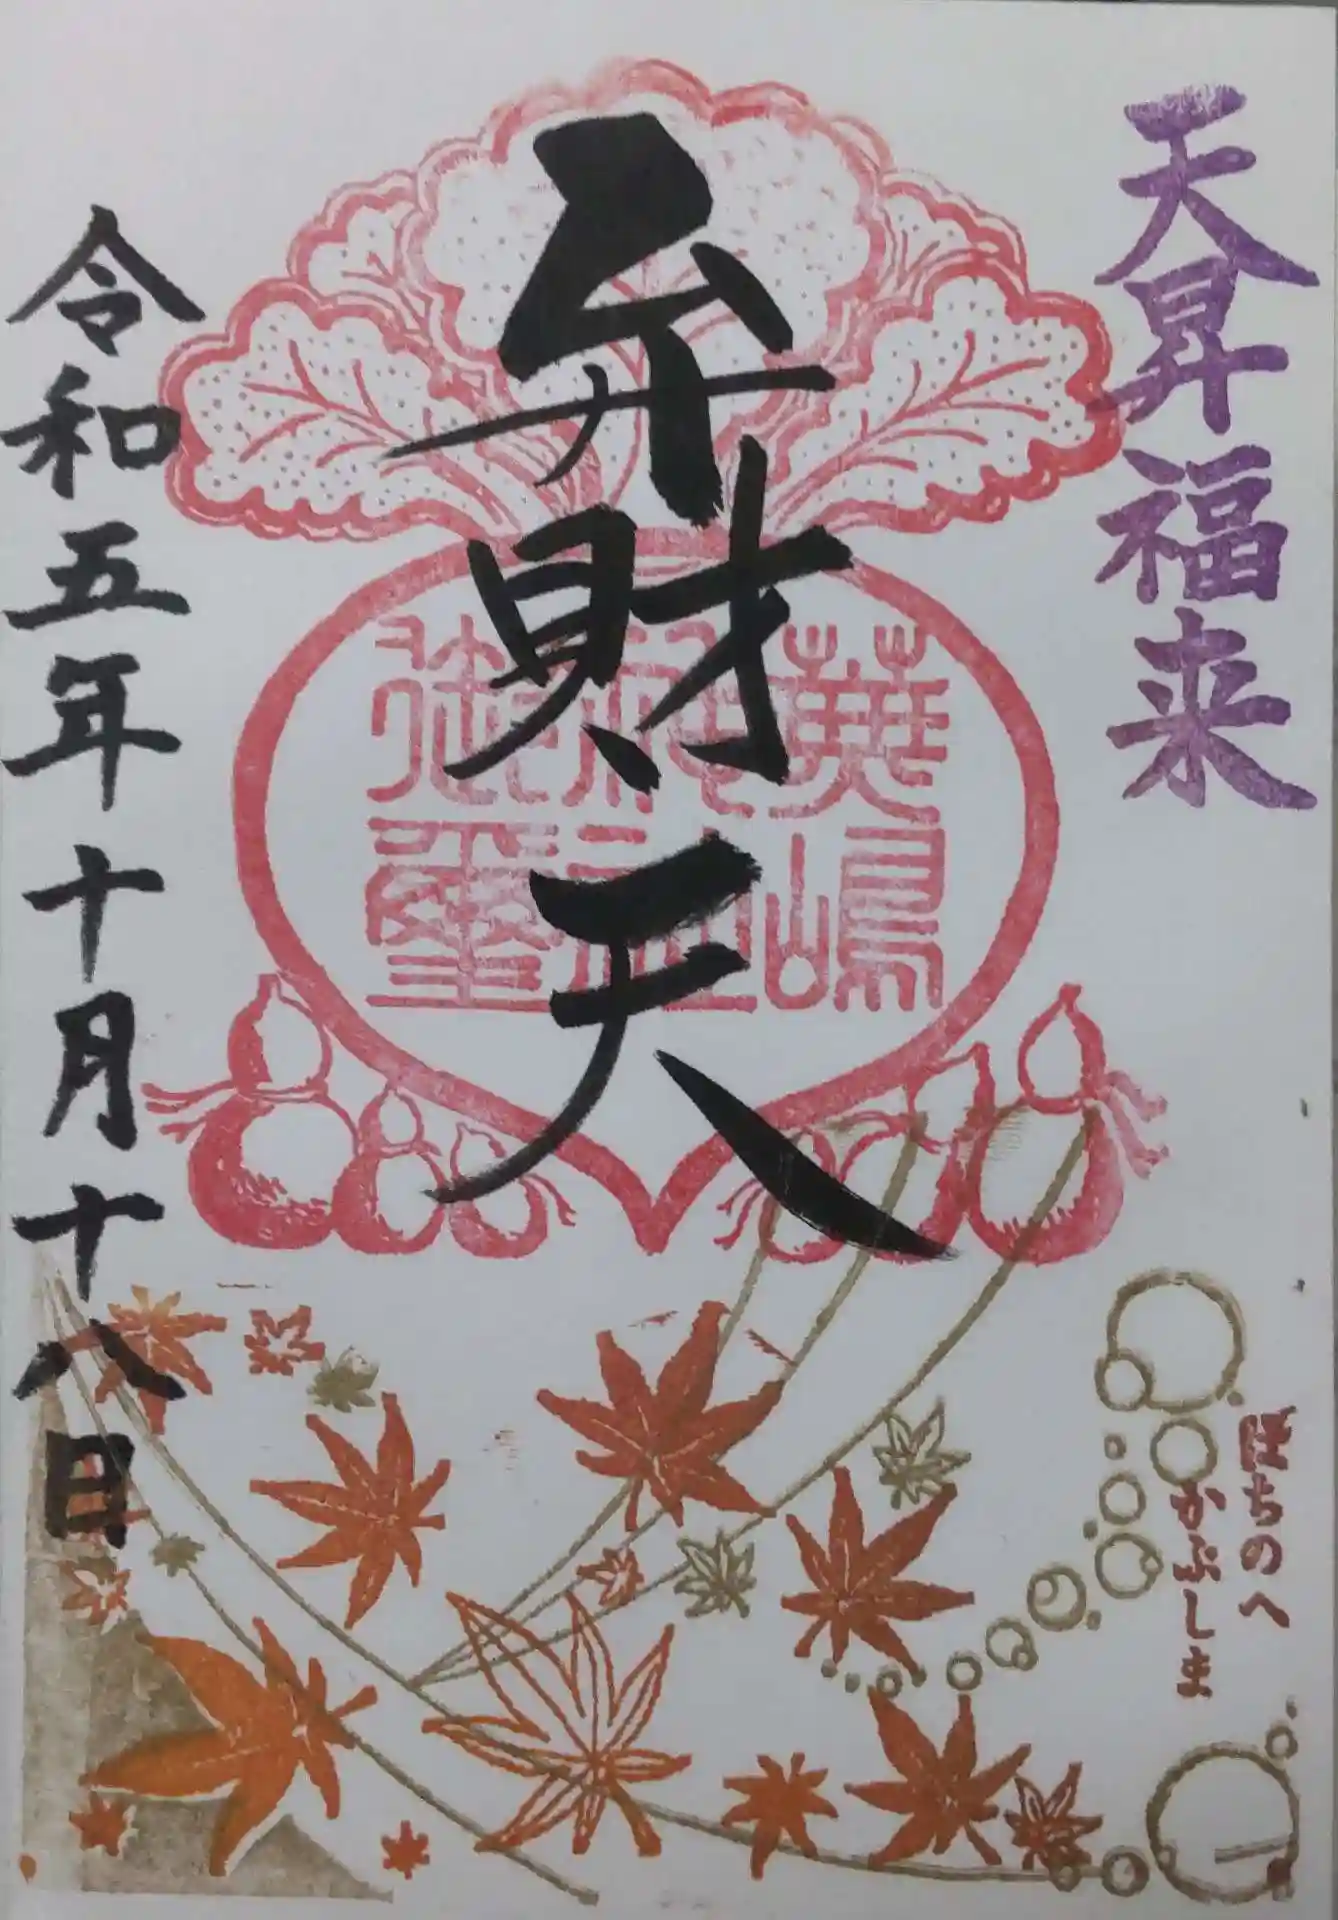 天昇福来
弁財天
蕪嶋
神社
御璽
令和五年十月十八日
はちのへ
かぶしま